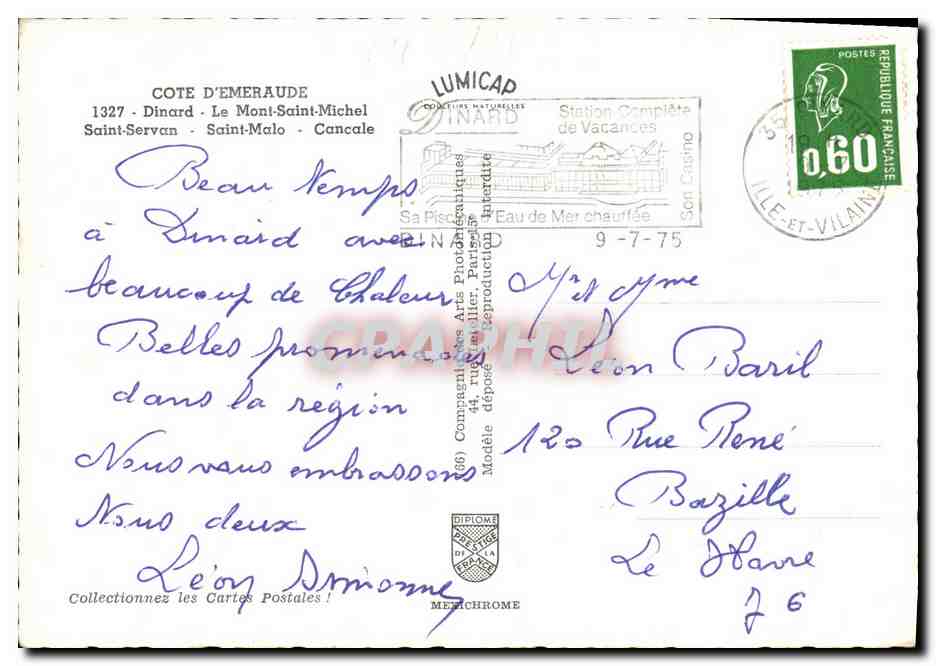 COTE D'EMERAUDE
1327 - Dinard - Le Mont-Saint-Michel
Saint-Servan - Saint-Malo - Cancale
Beau temps
à Dinard avec
beaucoup de Chaleur
Belles promenades
dans la région
Nous vous embrassons
Nous deux
Léon Simonne
Collectionnez les Cartes Postales !
LUMICAP
COULEURS NATURELLES
DINARD
Station Complète
de Vacances
Son Casino
Sa Piscine d'Eau de Mer chauffée
DINARD 9-7-75
(66) Compagnie des Arts Photomécaniques
44, rue Letellier, Paris-15e
Modèle déposé - Reproduction Interdite
DIPLOME
PRESTIGE
DE LA
FRANCE
MEXICHROME
POSTES
REPUBLIQUE FRANÇAISE
0,60
35
ILLE-ET-VILAINE
Mr et Mme
Léon Baril
120 Rue René
Bazille
Le Havre
76
CPAPHIL